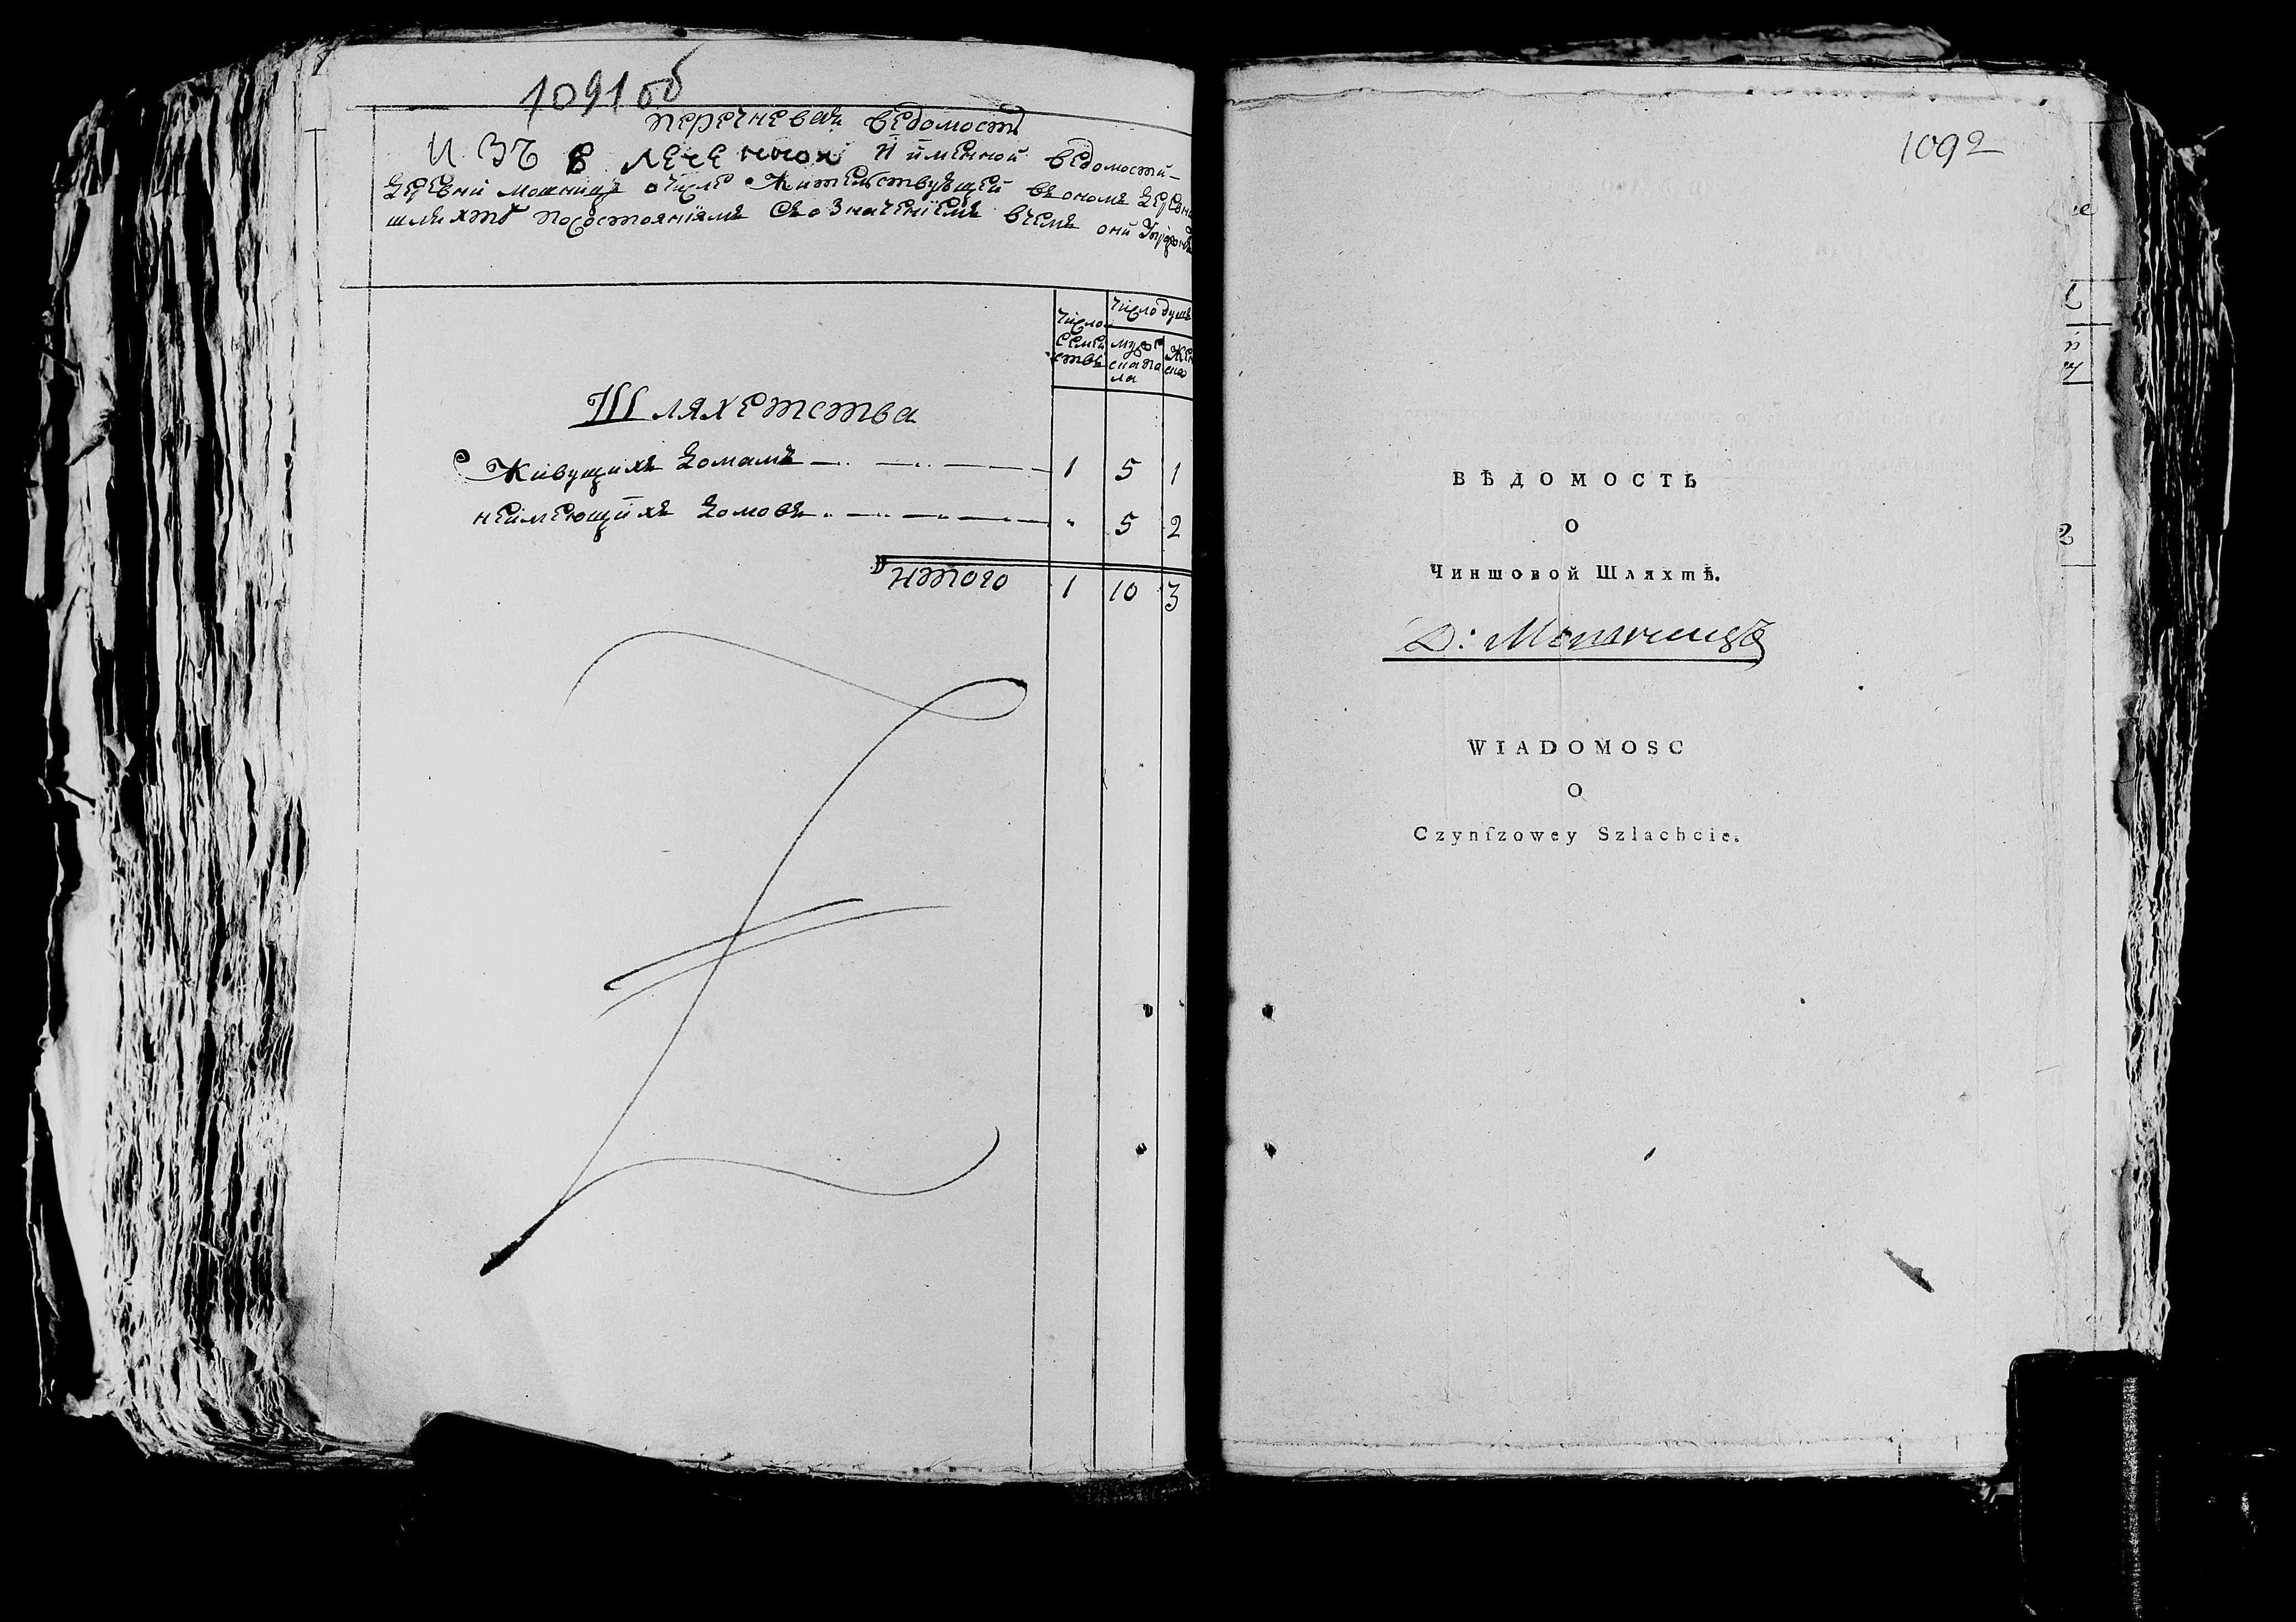 1091 об
Перечневая ведомость
Изъ влеченная И именной ведомости
Деревни Мошниц очисле Жителствующей въономъ Деревни
шляхте Посостояниямъ Съозначениемъ вчемъ они
Число семействъ
Число душъ
мужеска пола
Женска
Шляхетства
Живущихъ домамъ 1 5 1
неимеющихъ домовъ " 5 2
Итого 1 10 3
1092
ВѢДОМОСТЬ
О
Чиншовой Шляхтѣ.
Д: Мошницъ
WIADOMOSC
O
Czynſzowey Szlachcie.